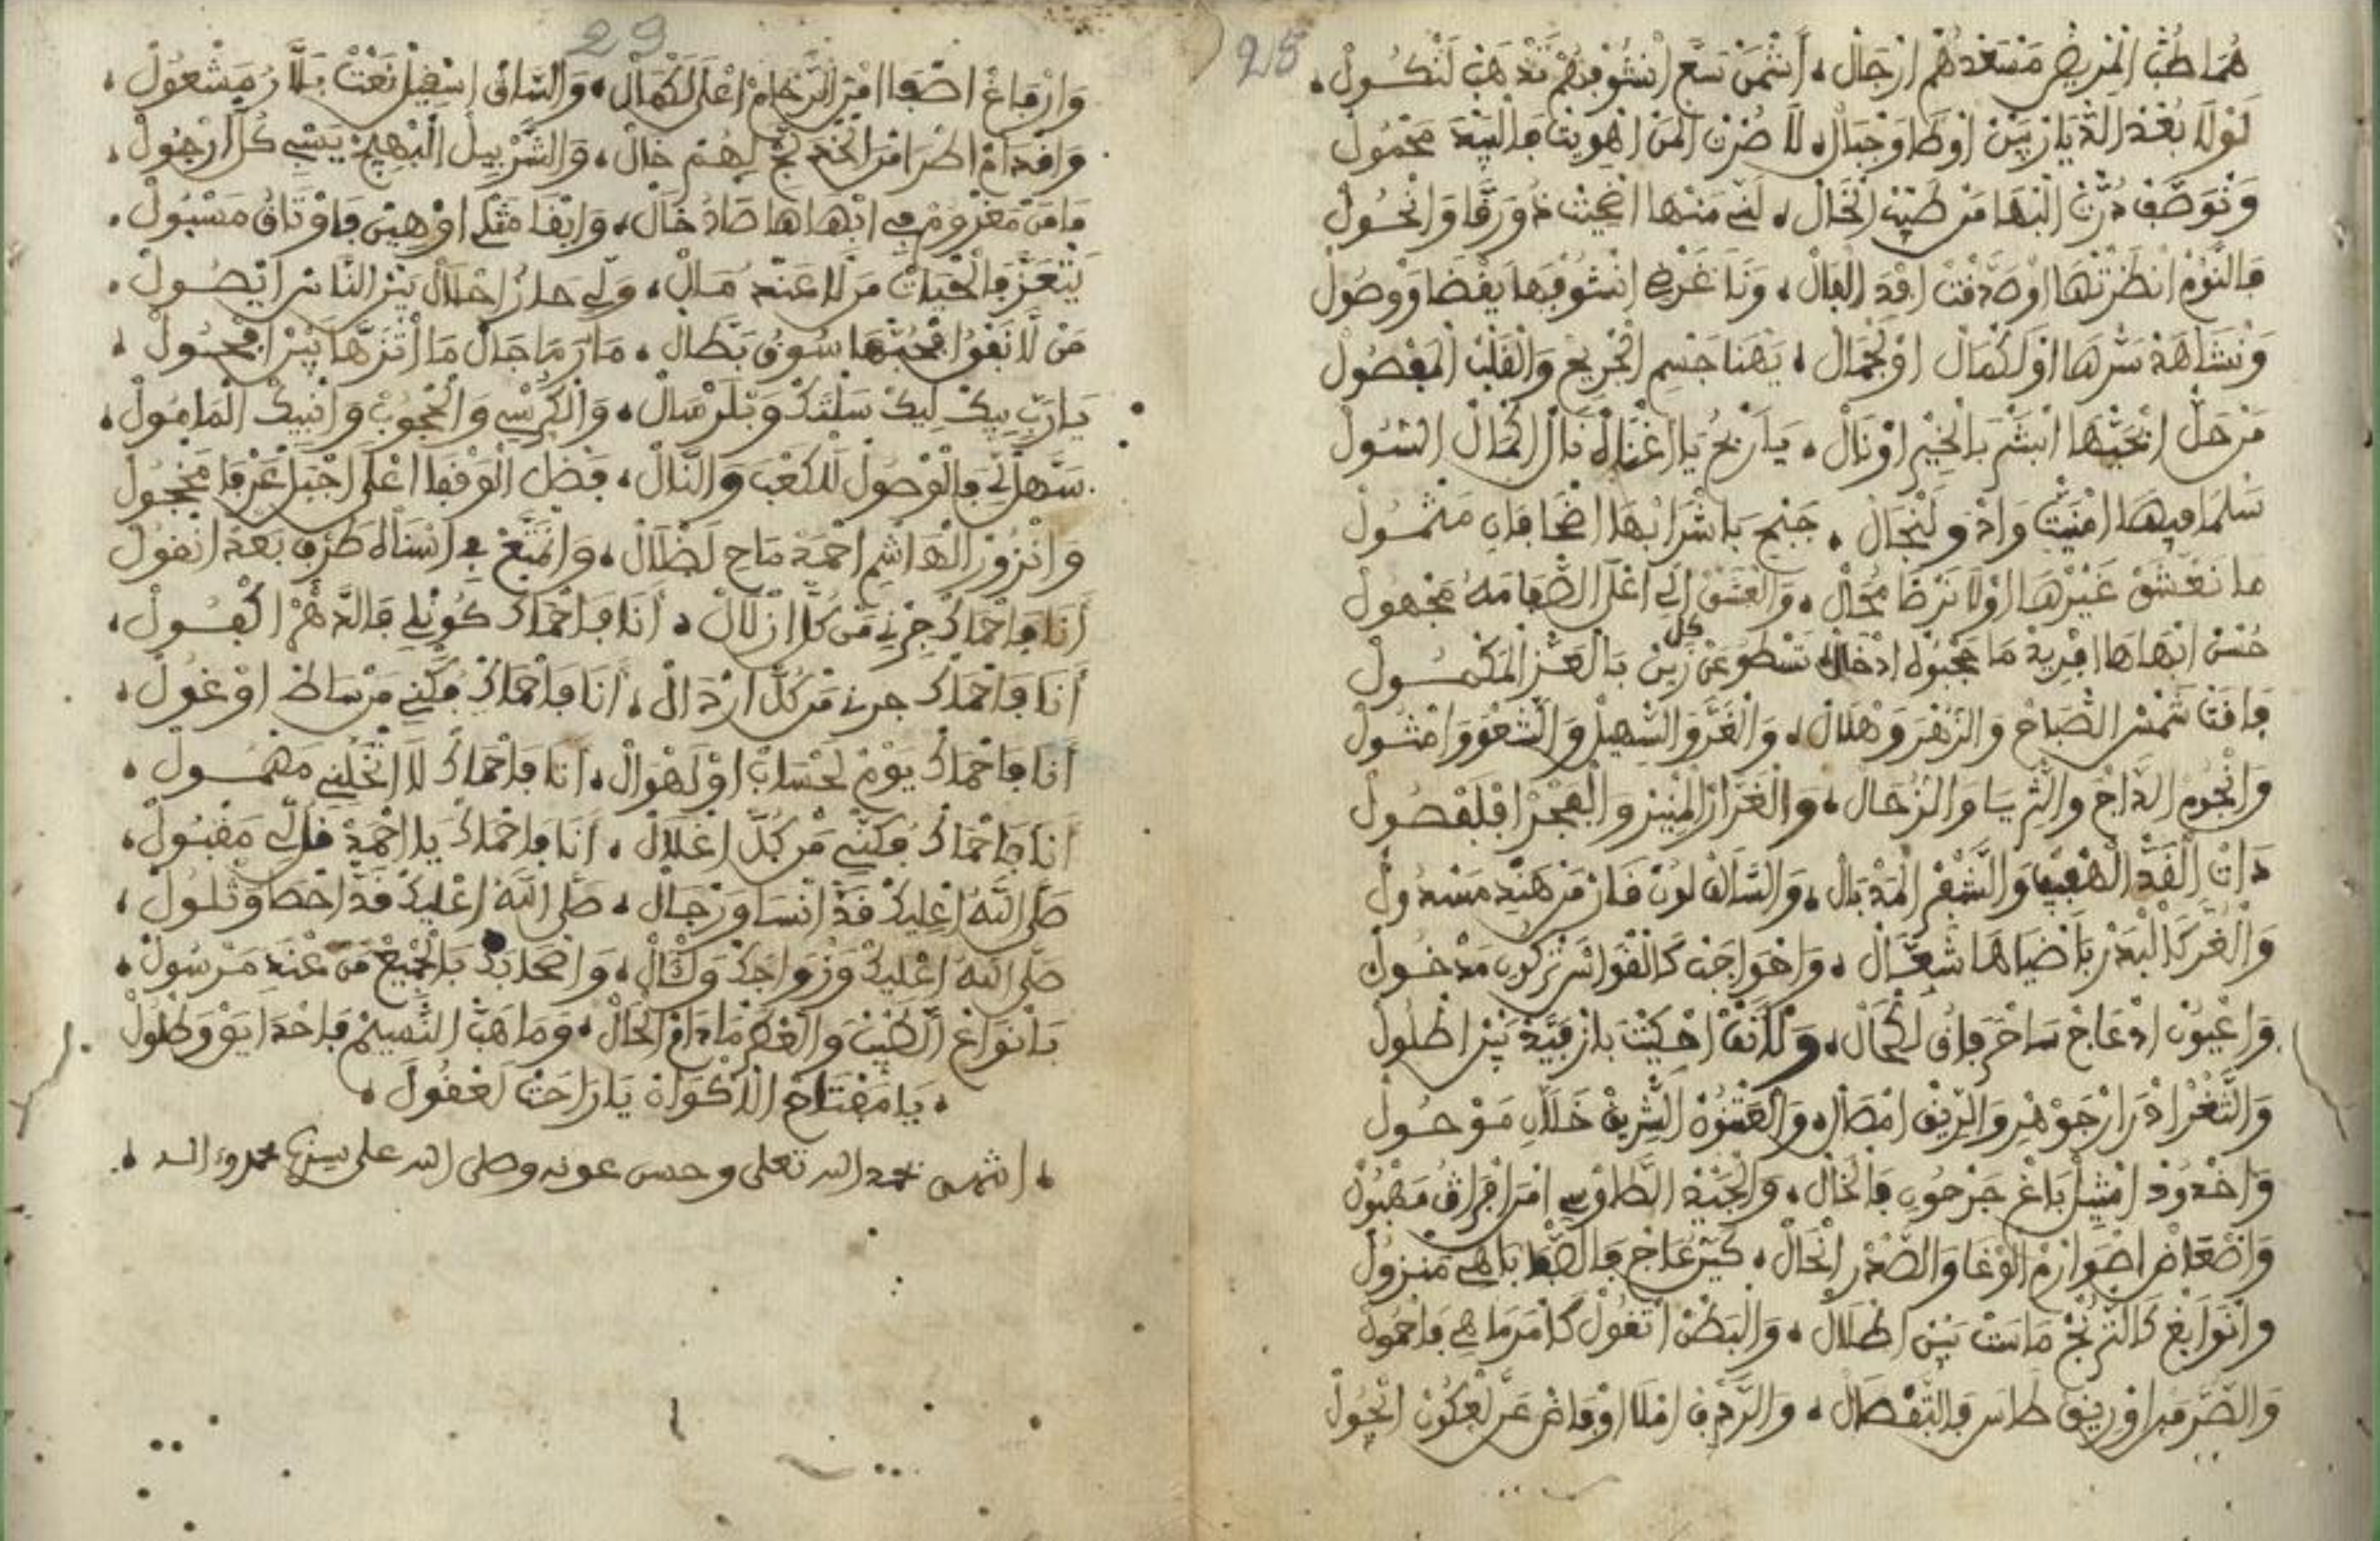 28
هُمَا طُبْ الْمْرِيضْ مَنْسَعْدْهُمْ ازْجَالْ، أَشْمَنْ سَبَّعْ انْشُوفْهُمْ تَذْهَبْ لَنْكُولْ،
لَوْلَا بُعْدْ الدْيَارْ بِينْ اوْطَا وَجْبَالْ، لَا صُرْتْ الْمَنْ اهْوِيتْ فَالْبِيدَ مَحْمُولْ
وَنْوَصَّفْ دُرْتْ الْبْهَا مَنْ طَيْبْ الْخَالْ، لَنِّي مَنْهَا اضْحِيتْ وَرْقَا وَانْحُولْ
فَالنُّومْ انْظَرْتْهَا اوْصَدْفَتْ اقْدَ الْفَالْ، وَنَا غَرْضِي انْشُوفْهَا يَقْضَا وَوْصُولْ
وَنْشَاهَدْ سَرْهَا اوْلَكْمَالْ اوْلَجْمَالْ، يَهْنَا جَسْمِ الْجْرِيحْ وَالْقَلْبْ الْمَفْصُولْ
مَنْ حَلْ ابْحَيْهَا ابْشَرْ بَالْخِيرْ اوْنَالْ، يَارَبْحْ يَا اغْنَاهْ نَالْ الْكْمَالْ السُّولْ
سَلْمَا فِيهَا افْنِيتْ وَادْوَ لَنْجَالْ، جَنْحِ بَاشْرَابْهَا اضْحَا فَانِ مَثْمُولْ
مَا نَعْشَقْ غَيْرْهَا اوْلَا نَرْضَا مُحَالْ، وَالْعَشْقْ الِي اعْلَا الصْفَا مَهْ مَجْهُولْ
حُسْنْ ابْهَاهَا افْرِيدْ مَا مَحْبُوهْ ادْخَالْ، تَسْطَعْ عَنْ كل زِينْ بَالْعَزْ الْمَكْمُولْ
فَاقَتْ شَمْسْ الصْبَاحْ وَالزَّهْرَ وَهْلَالْ، وَالْغَرَّ وَالسْهِيلْ وَالشَّعْوَ وَامْثُولْ
وَانْجُومْ الدَّاجْ وَالثْرِيَا وَالزُّحَالْ، وَالْغَرَّارْ الْمْنِيرْ وَالْفْجَرْ افْلَفْصُولْ
دَاتْ الْقَدْ الْهْفِيفْ وَالشَّفْرْ الْمَدْبَالْ، وَالسَّالَفْ لُونْ قَارْ مَنْ هَنْدِ مَسْدُولْ
وَالْغُرَّ كَالْبَدْرْ بَاضْيَاهَا شَعَّالْ، وَاخْوَاجَبْ كَالْقْوَاسْ تَرْكِي مَدْخُولْ
وَاعْيُونْ ادْعَاجْ سَاحْرَ فَاقْ لَكْحَالْ، وَلَانَفْ احْكِيتْ بَازْ قَيَّدْ بِينْ اطْلُولْ
وَالثَّغْرْ ادْرَارْ جَوْهَرْ وَالرِّيقْ امْصَالْ، وَالْعَنْقُ الشْرِيقْ خَلَّانِ مَوْحُولْ
وَاخْدُودْ امْثِيلْ بَاغْ جَرْحُونِ فَالْحَالْ، وَالْجِيدْ الطَّاوْسِي امْرَا فَرَاقْ مَهْبُولْ
وَاضْعَاضْ اصْوَارَمْ الْوْغَا وَالصَّدْرْ انْحَالْ، كَنْزْ عَاجْ فَالصْفَا بَاهِي مَنْزُولْ
وَانْوَابَغْ كَالتْرَنْجْ مَاسَتْ بِينْ اظْلَالْ، وَالْبَطْنْ اتْقُولْ كَامْرَ مَاهِي فَاحْمُولْ
وَالصَّرّ مْرَاوْرِيقْ طَاسْ فَالتَّفْصَالْ، وَالرَّدْفْ امْلَا اوْفَاضْ عَنْ لَعْكُونْ انْحُولْ
29
وَارْفَاغْ اصْفَا امْنْ الرْخَامْ اعْلَى لَكْمَالْ، وَالسَّاقْ اسْقِيلْ نَعْتْ بَلَّارْ مَشْعُولْ،
وَاقْدَامْ اطْرَا مَنْ الْخَدْ لِهُمْ خَالْ، وَالشَّرْبِيلْ الْبْهِيجْ يَسْبِي كُلْ ارْجُولْ،
فَامَنْ مَغْرُومْ فِي ابْهَاهَا صَارْ خَالْ، وَابْقَا مَثْلِي اوْهِينْ فَاوْثَاقْ مَسْبُولْ،
يَتْعَزَّ فَالْحْيَاتْ مَنْ لَا عَنْدُ مَالْ، وَلِي حَازْ احْلَالْ بِينْ النَّاسْ ايْصُولْ،
مَنْ لَا نَفْقُوا فْحُبّهَا سُوقُ بَطَّالْ، مَارَ مَاجَالْ مَا اتْنَزَّهَا بِينْ افْحُولْ،
يَارَبِّ بِيكْ لِيكْ سَلْتَكْ وَبْلَرْسَالْ، وَالْكُرْسِي وَالْحْجُوبْ وَانْبِيكْ الْمَامُولْ،
سَهَّلْ لِي فَالْوْصُولْ لَلْكَعْبَ وَالنَّالْ، فَضْلْ الْوَقْفَا اعْلَى اجْبَلْ عَرْفَا مَحْجُولْ
وَانْزُورْ الْهَاشْمِ احْمَدْ مَاحِ لَضْلَالْ، وَانْمَتَّعْ فِي اسْنَاهْ طَرْفِ بَعْدْ انْقُولْ
أَنَا فَاحْمَاكْ جِرْنِي مَنْ كُلْ ازْلَالْ، أَنَا فَاحْمَاكْ كُونْلِي فَالدَّهْرْ اكْفُولْ،
أَنَا فَاحْمَاكْ جرني مَنْ كُلّ ارْدَالْ، أَنَا فَاحْمَاكْ فُكْنِي مَنْ سَاطْ اوْغُولْ،
أَنَا فَاحْمَاكْ يَوْمْ لَحْسَابْ اوْلَهْوَالْ، أَنَا فَاحْمَاكْ لَا اتْخَلِّنِي مَهْمُولْ،
أَنَا فَاحْمَاكْ فُكْنِي مَنْ كُلّ اغْلَالْ، أَنَا فَاحْمَاكْ يَا احْمَدْ قُلِّي مَقْبُولْ،
صَلَّى اللهُ اعْلِيكْ قَدْ انْسَا وَرْجَالْ، صَلَّى اللهُ اعْلِيكْ قَدْ احْصَا وَثْلُولْ،
صَلَّى اللهُ اعْلِيكْ وَزْوَاجَكْ وَكْآلْ، وَاصْحَابَكْ بَالْجْمِيعْ مَنْ عَنْدَ مَرْسُولْ،
بَانْوَاعْ الطِّيبْ وَالْعْطَرْ مَادَامْ الْحَالْ، وَمَا هَبْ النْسِيمْ فَاحْدَايَقْ وَطْلُولْ،
، يَا مَفْتَاحْ الْاكْوَانْ يَا رَاحَتْ لَعْقُولْ،
، انتهى بحمد الله تعلى وحسن عونه وصلى الله على سيدنا محمد وءاله،